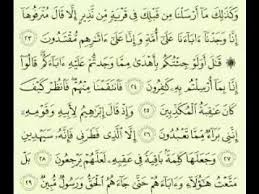 وَكَذَٰلِكَ مَآ أَرْسَلْنَا مِن قَبْلِكَ فِي قَرْيَةٍ مِّن نَّذِيرٍ إِلَّا قَالَ مُتْرَفُوهَآ
إِنَّا وَجَدْنَآ ءَابَآءَنَا عَلَىٰٓ أُمَّةٍ وَإِنَّا عَلَىٰٓ ءَاثَٰرِهِم مُّقْتَدُونَ ٢٣
۞ قَٰلَ أَوَلَوْ جِئْتُكُم بِأَهْدَىٰ مِمَّا وَجَدتُّمْ عَلَيْهِ ءَابَآءَكُمْ قَالُوٓا۟
إِنَّا بِمَآ أُرْسِلْتُم بِهِۦ كَٰفِرُونَ ٢٤ فَٱنتَقَمْنَا مِنْهُمْ فَٱنظُرْ كَيْفَ
كَانَ عَٰقِبَةُ ٱلْمُكَذِّبِينَ ٢٥ وَإِذْ قَالَ إِبْرَٰهِيمُ لِأَبِيهِ وَقَوْمِهِۦٓ
إِنَّنِي بَرَآءٌ مِّمَّا تَعْبُدُونَ ٢٦ إِلَّا ٱلَّذِي فَطَرَنِي فَإِنَّهُۥ سَيَهْدِينِ
٢٧ وَجَعَلَهَا كَلِمَةًۢ بَاقِيَةً فِي عَقِبِهِۦ لَعَلَّهُمْ يَرْجِعُونَ ٢٨ بَلْ
مَتَّعْتُ هَٰٓؤُلَآءِ وَءَابَآءَهُمْ حَتَّىٰ جَآءَهُمُ ٱلْحَقُّ وَرَسُولٌ مُّبِينٌ